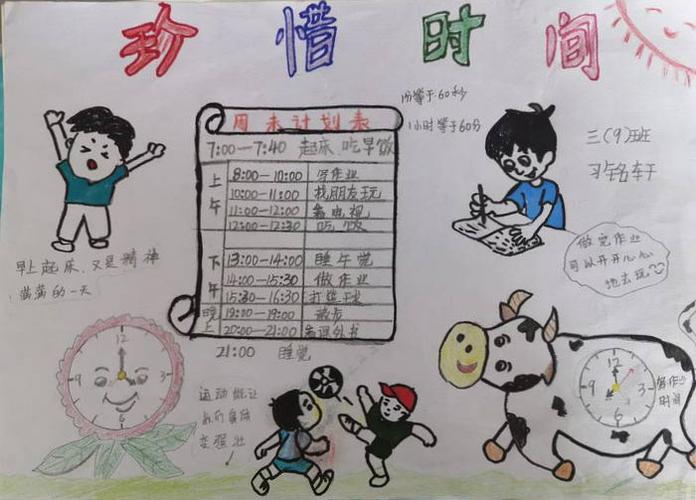 珍惜时间
1分等于60秒
1小时等于60分
三(9)班
周末计划表
7:00—7:40 起床、吃早饭
上午
8:00—10:00 写作业
10:00—11:00 找朋友玩
11:00—12:00 看电视
12:00—12:30 吃饭
下午
13:00—14:00 睡午觉
14:00—15:30 做作业
15:30—16:30 打篮球
晚上
18:00—19:00 散步
20:00—21:00 看课外书
21:00 睡觉
早上起床、又是精神
满满的一天
做完作业
可以开开心心
地去玩
12
3
6
9
运动能让
我们身体
变强壮
!
12
3
6
9
写作业
时间